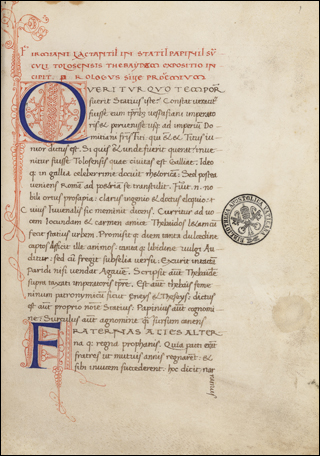 FIRMIANI LACTANTII IN STATII PAPINII SV
CVLI TOLOSENSIS THEBAYDEM EXPOSITIO IN
CIPIT. PROLOGVS SIVE PROEMIVM
QVERITVR QVO TEMPOR
fuerit Statius iste? Constat
fuisse eum Vespasiani imperato
ris & pervenisse usq ad imperiu Do
mitiani fris Titi qui & Titus iu
nior dictus est. Si quis & unde fuerit querat: inve
nitur fuisse Tolosensis quae civitas est Galliae: Ideo
q in gallia celeberrime docuit rhetorica: Sed postea
veniens Roma ad se transtulit. Fuit no
bili ortus prosapia: clarus ingenio & doctus eloquio: &
Cuius Iuvenalis sic meminit dicens. Curritur ad vo
cem Iocundam & carmen amice Thebaidos laeta cu
fecit statius urbem. Promisit q diem tanta dulcedine
captos afficit ille animos: tanta q libidine vulgi Au
ditur: sed cu fregit subsellia versu: Esurit intacta
paridi nisi vendat Agave. Scripsit aut Thebaide
supra imperatoris Est aut thebais feme
ninum patronymicu sicut & Theseys: dictus
est aut proprio noie Statius. Papinius aut cognomi
ne: Surculus aut agnomine q sursum canens
FRATERNAS ACIES ALTER
na q regna prophanis. Quia
fratres ut mutuis annis regnaret: &
sibi invicem succederent: hoc dicit: nar